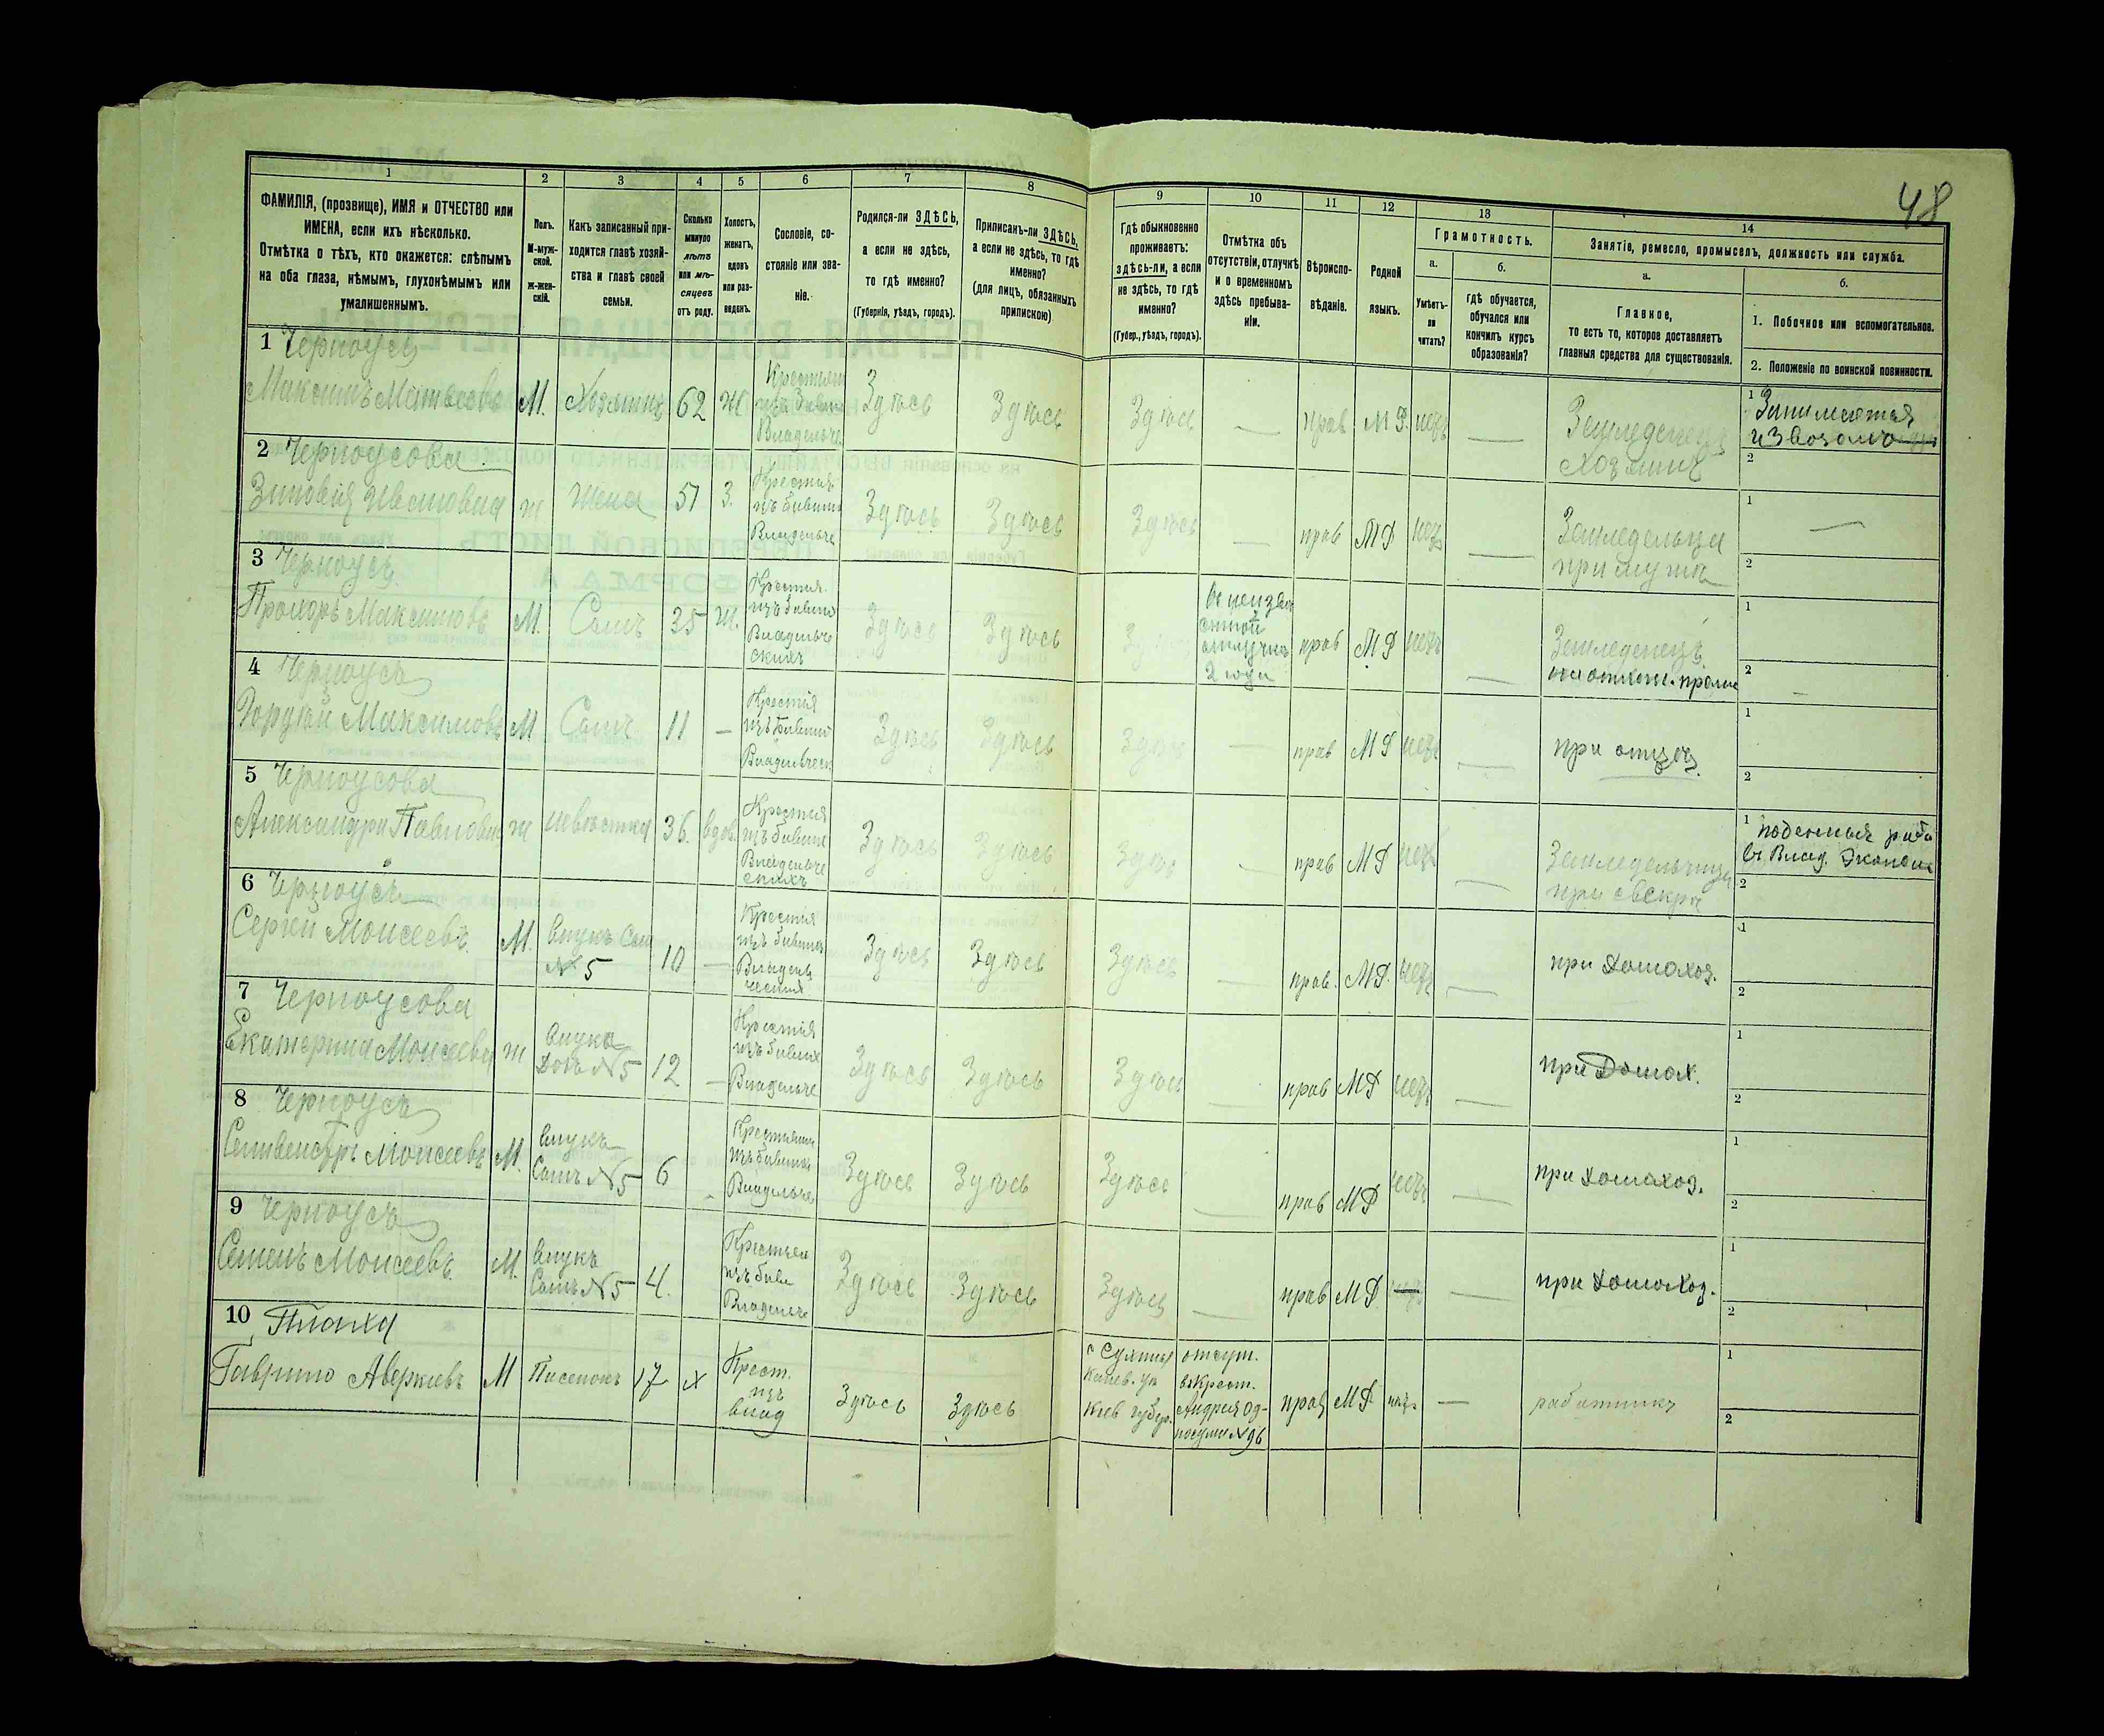 48
1 2 3 4 5 6 7 8 9 10 11 12 13 14
ФАМИЛІЯ, (прозвище), ИМЯ и ОТЧЕСТВО или
ИМЕНА, если ихъ нѣсколько.
Отмѣтка о тѣхъ, кто окажется: слѣпымъ
на оба глаза, нѣмымъ, глухонѣмымъ или
умалишеннымъ.
Полъ.
М-муж-
ской.
Ж-жен-
скій.
Какъ записанный при-
ходится главѣ хозяй-
ства и главѣ своей
семьи.
Сколько
минуло
лѣтъ
или мѣ-
сяцевъ
отъ роду.
Холостъ,
женатъ,
вдовъ
или раз-
веденъ.
Сословіе, со-
стояніе или зва-
ніе.
Родился-ли ЗДѢСЬ,
а если не здѣсь,
то гдѣ именно?
(Губернія, уѣздъ, городъ).
Приписанъ-ли ЗДѢСЬ,
а если не здѣсь, то гдѣ
именно?
(для лицъ, обязанныхъ
припискою)
Гдѣ обыкновенно
проживаетъ:
здѣсь-ли, а если
не здѣсь, то гдѣ
именно?
(Губер., уѣздъ, городъ).
Отмѣтка объ
отсутствіи, отлучкѣ
и о временномъ
здѣсь пребыва-
ніи.
Вѣроиспо-
вѣданіе.
Родной
языкъ.
Грамотность.
а.
Умѣетъ-
ли
читать?
б.
гдѣ обучается,
обучался или
кончилъ курсъ
образованія?
Занятіе, ремесло, промыселъ, должность или служба.
а.
Главное,
то есть то, которое доставляетъ
главныя средства для существованія.
б.
1. Побочное или вспомогательное.
2. Положеніе по воинской повинности.
1 Черноусъ
Максимъ Матвеевъ М. Хозяинъ 62 Ж
Крестьян
изъ бывш
Владельче
Здѣсь Здѣсь Здѣсь — прав М Р. нетъ —
Земледелецъ
Хозяинъ
1 Занимается
извозомъ
2
2 Черноусова
Зиновія Ивановна ж Жена 51 З.
Крестья
изъ бывши
Владельче
Здѣсь Здѣсь Здѣсь — прав М Р нетъ —
Земледельца
при мужѣ
1 —
2
3 Черноусъ
Максимовъ М. Сынъ 35 Ж.
Крестья
изъ бывши
Владельче
скихъ
Здѣсь Здѣсь
2 года
прав М Р нетъ —
Земледелецъ
1
2 —
4 Черноусъ
Гордѣй Максимовъ М Сынъ 11 —
Крестья
изъ бывши
Владельческ
Здѣсь Здѣсь Здѣсь — прав М Р нетъ —
при отцѣ.
1
2
5 Черноусова
Александра Павловна ж невѣстка 36. вдов.
Крестья
изъ бывши
Владельче
скихъ
Здѣсь Здѣсь Здѣсь — прав М Р нетъ —
Земледельчица
при свекрѣ
1 поденная рабо
въ Влад. Эконом
2
6 Черноусъ
Сергѣй Моисеевъ. М. внукъ Сын
№ 5
10 —
Крестья
изъ бывшихъ
Владель
ческихъ
Здѣсь Здѣсь Здѣсь — прав. М Р. нетъ —
при домахоз.
1
2
7 Черноусова
Екатерина Моисеева ж внука
Дочь № 5
12 —
Крестья
изъ бывших
Владельче
Здѣсь Здѣсь Здѣсь — прав М Р нетъ —
при Домах.
1
2
8 Черноусъ
Селивестръ Моисеевъ М. внукъ
Сынъ № 5
6 -
Крестьянин
изъ бывших
Владельче
Здѣсь Здѣсь Здѣсь — прав М Р нетъ —
при домахоз.
1
2
9 Черноусъ
Семенъ Моисеевъ. М. внукъ
Сынъ № 5
4.
Крестьян
изъ бывш
Владельче
Здѣсь Здѣсь Здѣсь — прав М Р —
при домахоз.
1
2
10
Гаврило Аверкиевъ М Пасынокъ 17 х
Крест.
изъ
влад
Здѣсь Здѣсь
Канев. уѣ
Киев губер.
отсут.
въ Крест.
№ 96
прав М Р нетъ —
работникъ
1
2